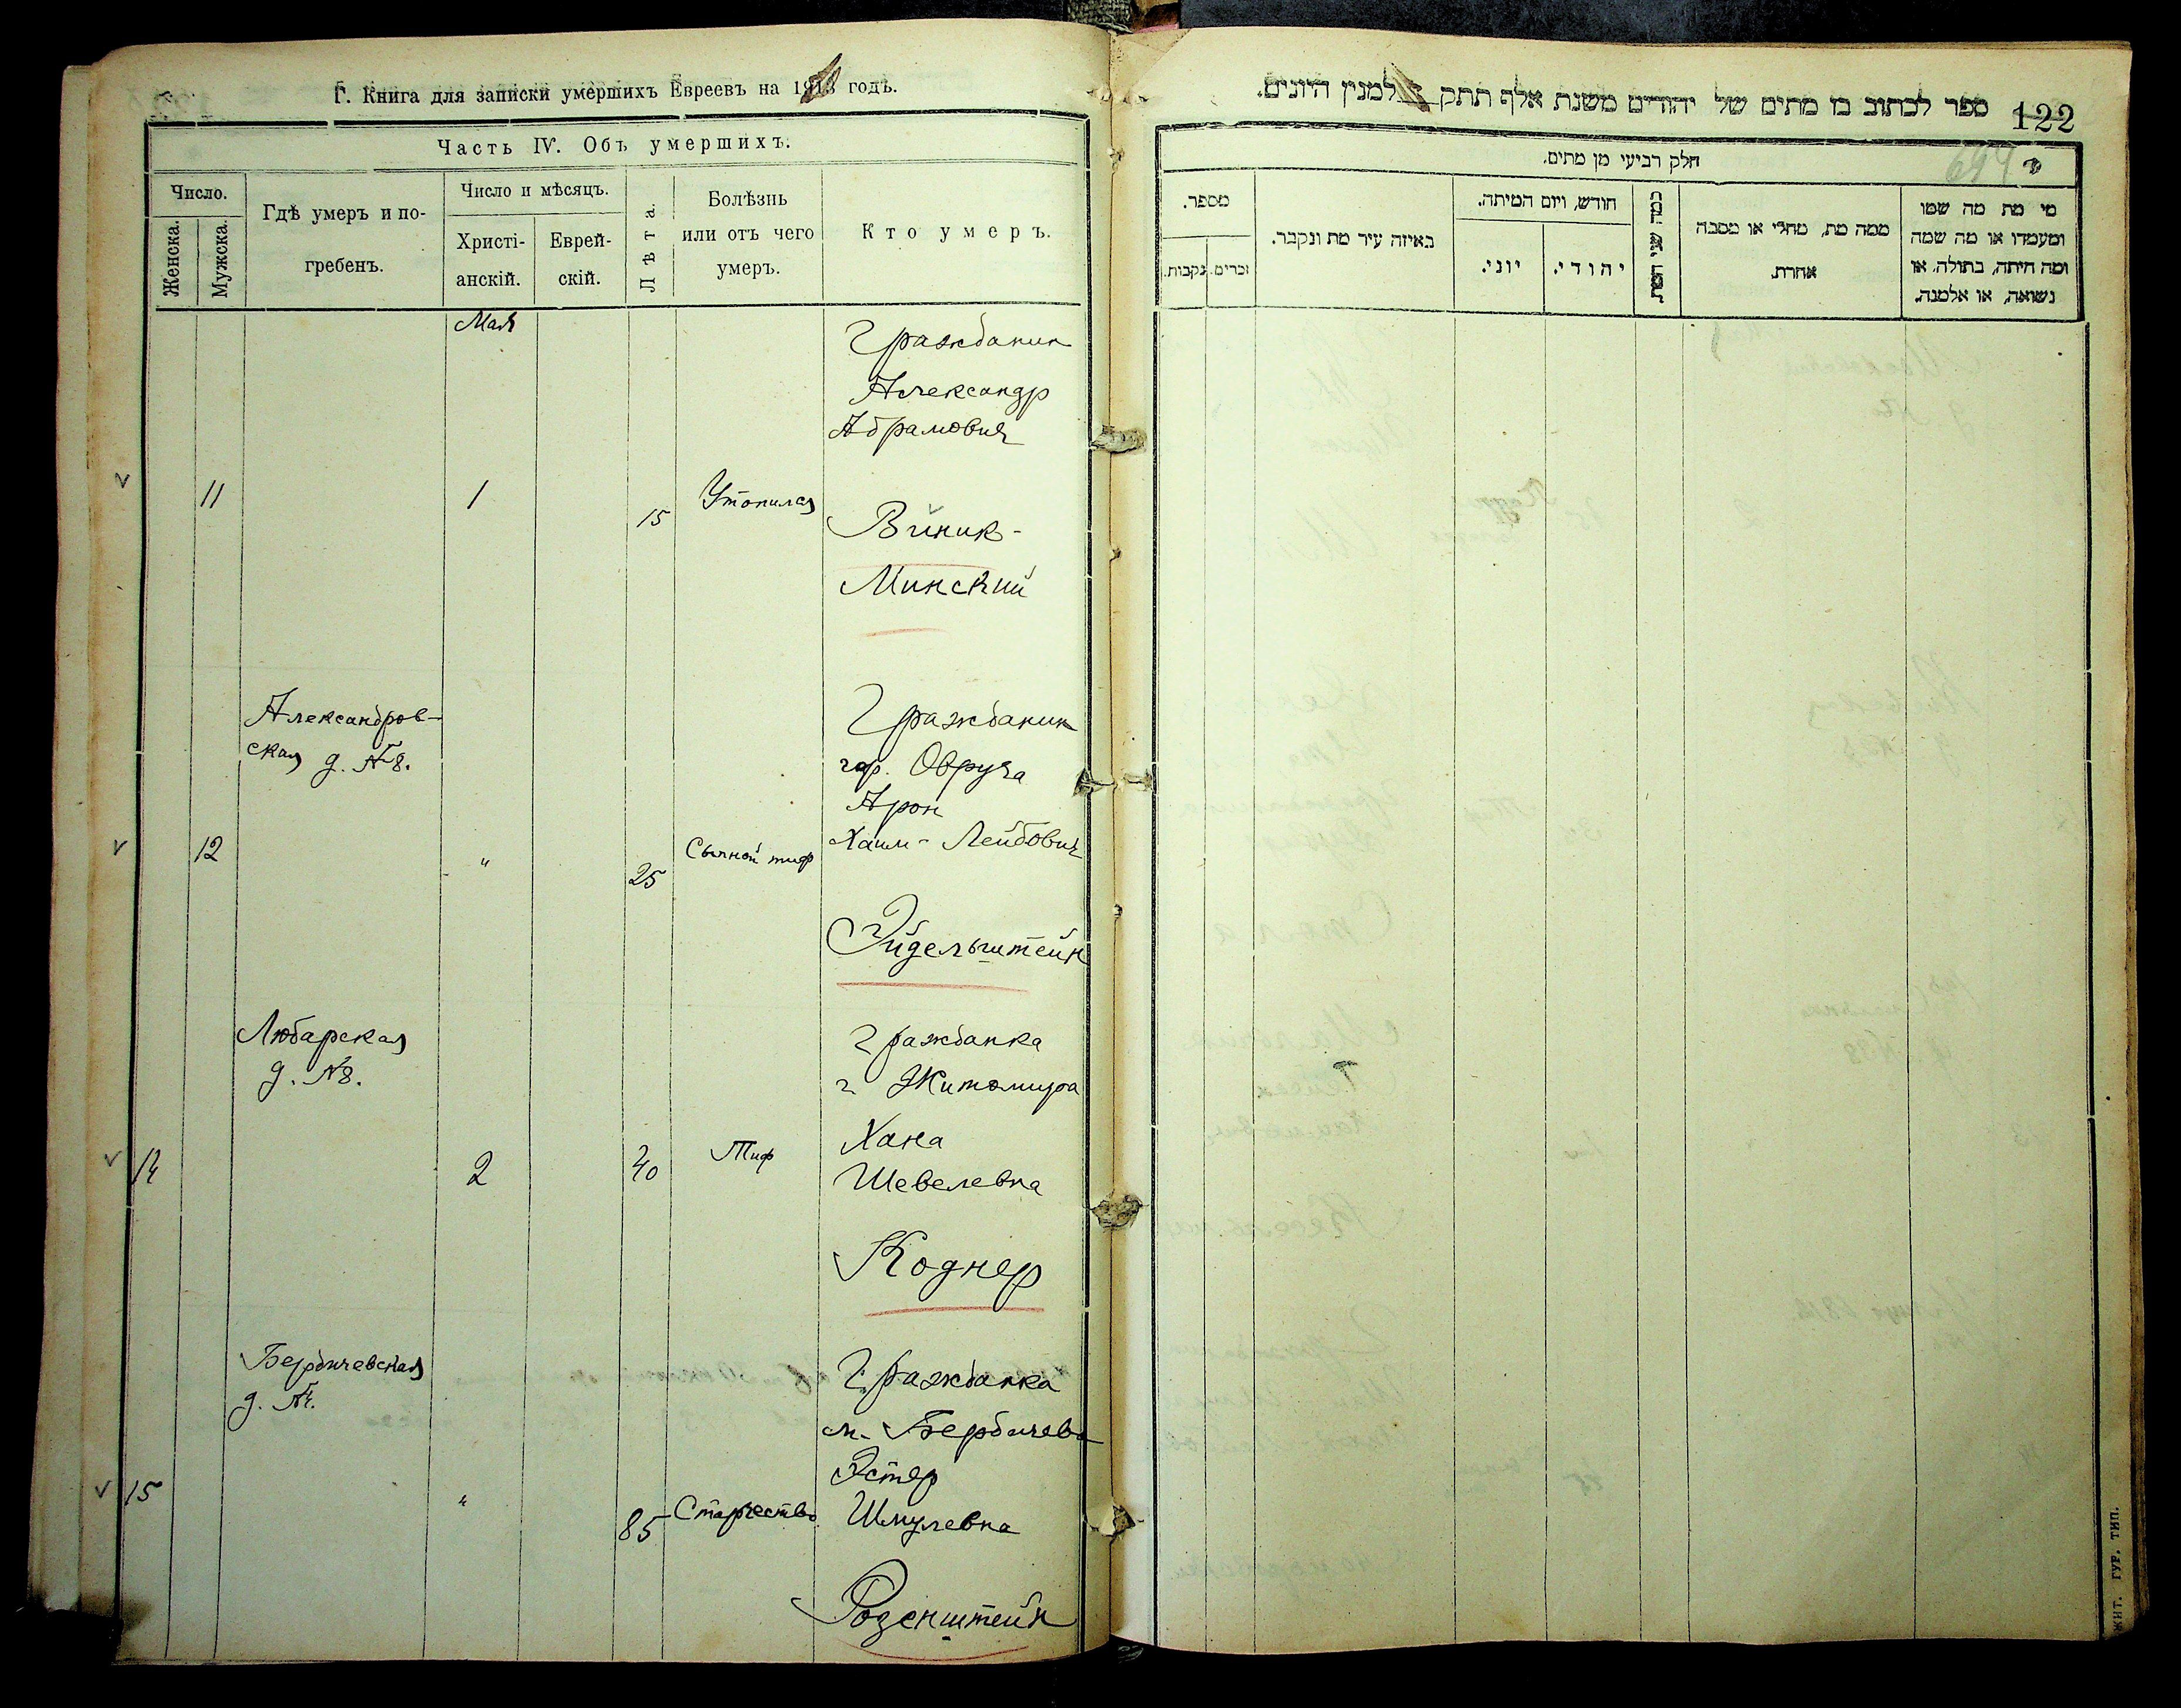 Г. Книга для записки умершихъ Евреевъ на 1918 годъ.
Часть IV. Объ умершихъ.
Число.
Женска.
Мужска.
Гдѣ умеръ и по-
гребенъ.
Число и мѣсяцъ.
Христі-
анскій.
Еврей-
скій.
Лѣта.
Болѣзнь
или отъ чего
умеръ.
Кто умеръ.
Мая
Гражданин
Александр
Абрамович
11 1 15 Утопился
Виник-
Минский
Александров-
ская д. №8.
Гражданин
гор. Овруча
Арон
Хаим-Лейбович
12 " 25 Сыпной тиф
Эйдельштейн
Любарская
д. №8.
Гражданка
г. Житомира
Хана
14 2 40 Тиф
Шевелевна
Коднер
Бердичевская
д. №
Гражданка
м. Бердичева
Эстер
15 " 85 Старчество Шмулевна
Розенштейн
ספר לכתוב בו מתים של יהודים משנת אלף תתק למנין היונים.
122
694
חלק רביעי מן מתים.
מספר.
נקבות.
זכרים.
באיזה עיר מת ונקבר.
חודש, ויום המיתה.
יוני.
יהודי.
כמה שני המת
ממה מת, מחלי או מסבה
אחרת.
מי מת מה שמו
ומעמדו או מה שמה
ומה היתה, בתולה, או
נשואה, או אלמנה.
ЖИТ. ГУР. ТИП.